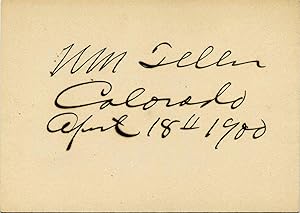 HM Teller
Colorado
April 18th 1900